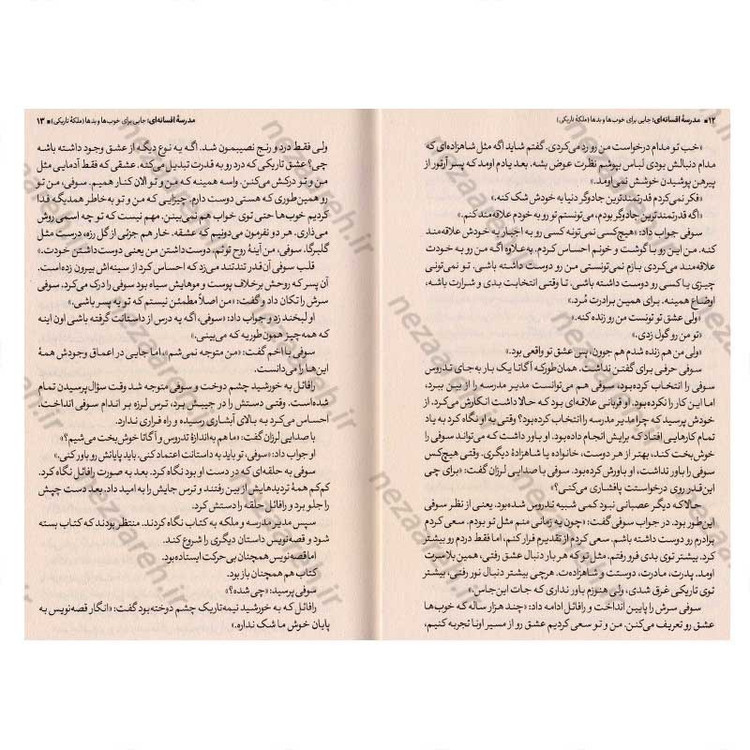 ۱۲ ■ مدرسهٔ افسانه‌ای: جایی برای خوب‌ها و بدها (ملکهٔ تاریکی)
«خب تو مدام درخواست من رو رد می‌کردی. گفتم شاید اگه مثل شاهزاده‌ای که
مدام دنبالش بودی لباس بپوشم نظرت عوض بشه. بعد یادم اومد که پسر آرتور از
پیرهن پوشیدن خوشش نمی‌اومد.»
«فکر نمی‌کردم قدرتمندترین جادوگر دنیا به خودش شک کنه.»
«اگه قدرتمندترین جادوگر بودم، می‌تونستم تو رو به خودم علاقه‌مند کنم.»
سوفی جواب داد: «هیچ‌کسی نمی‌تونه کسی رو به اجبار به خودش علاقه‌مند
کنه. من این رو با گوشت و خونم احساس کردم. به‌علاوه اگه من رو به خودت
علاقه‌مند می‌کردی بازم نمی‌تونستی من رو دوست داشته باشی. تو نمی‌تونی
چیزی یا کسی رو دوست داشته باشی. تا وقتی انتخابت بدی و شرارت باشه،
اوضاع همینه. برای همین برادرت مُرد.»
«ولی عشق تو تونست من رو زنده کنه.»
«تو من رو گول زدی.»
«ولی من هم زنده شدم هم جوون، پس عشق تو واقعی بود.»
سوفی حرفی برای گفتن نداشت. همان‌طور که آگاتا یک بار به‌جای تدروس
سوفی را انتخاب کرده بود، سوفی هم می‌توانست مدیر مدرسه را از بین ببرد،
اما این کار را نکرده بود. او قربانی علاقه‌ای بود که حالا داشت انکارش می‌کرد. از
خودش پرسید که چرا مدیر مدرسه را انتخاب کرده بود؟ وقتی به او نگاه کرد یاد
تمام کارهایی افتاد که برایش انجام داده بود. او باور داشت که می‌تواند سوفی را
خوش‌بخت کند، بهتر از هر دوست، خانواده یا شاهزادهٔ دیگری. وقتی هیچ‌کس
سوفی را باور نداشت، او باورش کرده بود. سوفی با صدایی لرزان گفت: «برای چی
این‌قدر روی درخواستت پافشاری می‌کنی؟»
حالا که دیگر عصبانی نبود کمی شبیه تدروس شده بود. یعنی از نظر سوفی
این‌طور بود. در جواب سوفی گفت: «چون یه زمانی منم مثل تو بودم. سعی کردم
برادرم رو دوست داشته باشم. سعی کردم از تقدیرم فرار کنم، اما فقط دردم رو بیشتر
کرد. بیشتر توی بدی فرو رفتم. مثل تو که هر بار دنبال عشق رفتی، همین بلا سرت
اومد. پدرت، مادرت، دوستت و شاهزاده‌ت. هرچی بیشتر دنبال نور رفتی، بیشتر
توی تاریکی غرق شدی، ولی هنوزم باور نداری که جات این‌جاس.»
سوفی سرش را پایین انداخت و رافائل ادامه داد: «چند هزار ساله که خوب‌ها
عشق رو تعریف می‌کنن. من و تو سعی کردیم عشق رو از مسیر اونا تجربه کنیم،
مدرسهٔ افسانه‌ای: جایی برای خوب‌ها و بدها (ملکهٔ تاریکی) ■ ۱۳
ولی فقط درد و رنج نصیبمون شد. اگه یه نوع دیگه از عشق وجود داشته باشه
چی؟ عشق تاریکی که درد رو به قدرت تبدیل می‌کنه. عشقی که فقط آدمایی مثل
من و تو درکش می‌کنن. واسه همینه که من و تو الان کنار همیم. سوفی، من تو
رو همین‌طوری که هستی دوست دارم. چیزایی که من و تو به خاطر همدیگه فدا
کردیم خوب‌ها حتی توی خواب هم نمی‌بینن. مهم نیست که تو چه اسمی روش
می‌ذاری. هر دو نفرمون می‌دونیم که عشقه. خار هم جزئی از گل رزه، درست مثل
گلبرگا. سوفی، من آینهٔ روح توئم. دوست‌داشتن من یعنی دوست‌داشتن خودت.»
قلب سوفی آن‌قدر تند تند می‌زد که احساس کرد از سینه‌اش بیرون زده است.
آن پسر که روحش برخلاف پوست و موهایش سیاه بود سوفی را درک می‌کرد. سوفی
سرش را تکان داد و گفت: «من اصلاً مطمئن نیستم که تو یه پسر باشی.»
او لبخند زد و جواب داد: «سوفی، اگه یه درس از داستانت گرفته باشی اون اینه
که همه‌چیز همون‌طوریه که می‌بینی.»
سوفی با اخم گفت: «من متوجه نمی‌شم»، اما جایی در اعماق وجودش همهٔ
این‌ها را می‌دانست.
رافائل به خورشید چشم دوخت و سوفی متوجه شد وقت سؤال‌پرسیدن تمام
شده‌است. وقتی دستش را در جیبش برد، ترس لرزه بر اندام سوفی انداخت.
احساس می‌کرد به بالای آبشاری رسیده و راه فراری ندارد.
با صدایی لرزان گفت: «ما هم به‌اندازهٔ تدروس و آگاتا خوش‌بخت می‌شیم؟»
او جواب داد: «سوفی، تو باید به داستانت اعتماد کنی. باید پایانش رو باور کنی.»
سوفی به حلقه‌ای که در دست او بود نگاه کرد. بعد به صورت رافائل نگاه کرد.
کم‌کم همهٔ تردیدهایش از بین رفتند و ترس جایش را به امید داد. بعد دست چپش
را جلو برد و رافائل حلقه را دستش کرد.
سپس مدیر مدرسه و ملکه به کتاب نگاه کردند. منتظر بودند که کتاب بسته
شود و قصه‌نویس داستان دیگری را شروع کند.
اما قصه‌نویس همچنان بی‌حرکت ایستاده بود.
کتاب هم همچنان باز بود.
سوفی پرسید: «چی شده؟»
رافائل که به خورشید نیمه‌تاریک چشم دوخته بود گفت: «انگار قصه‌نویس به
پایان خوش ما شک نداره.»
nezaareh.ir